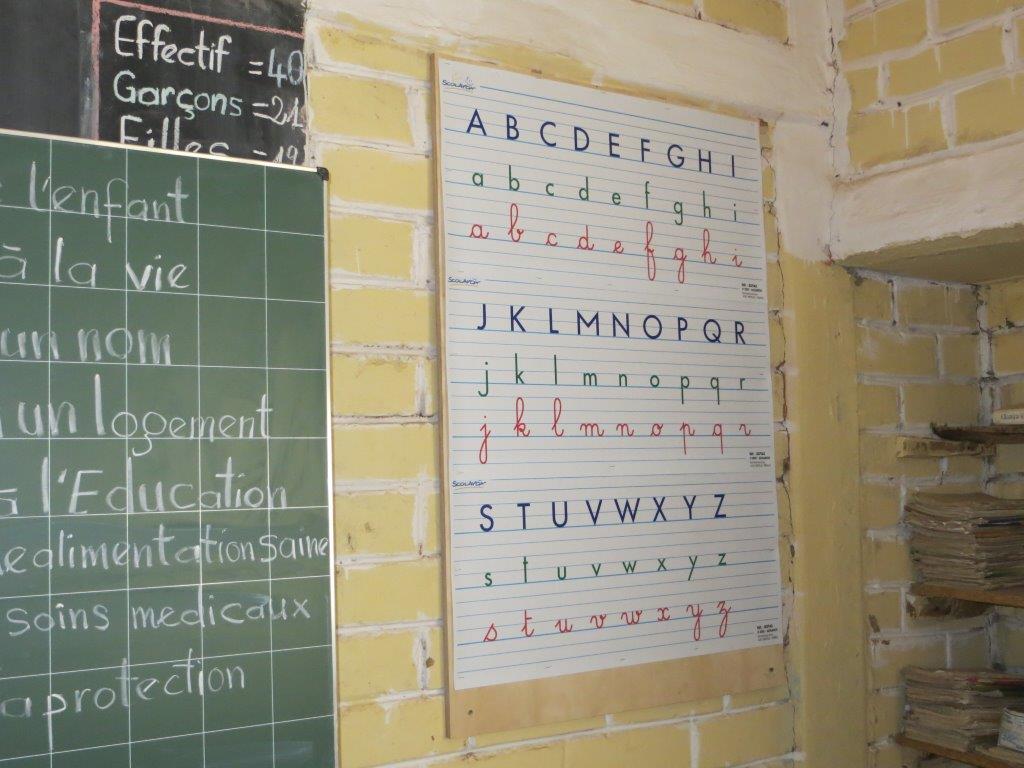 Effectif = 40
Garçons = 21
Filles = 19
l'enfant
à la vie
un nom
un logement
à l'Education
alimentation saine
soins medicaux
a protection
SCOLAVOX
A B C D E F G H I
a b c d e f g h i
a b c d e f g h i
J K L M N O P Q R
j k l m n o p q r
j k l m n o p q r
S T U V W X Y Z
s t u v w x y z
s t u v w x y z